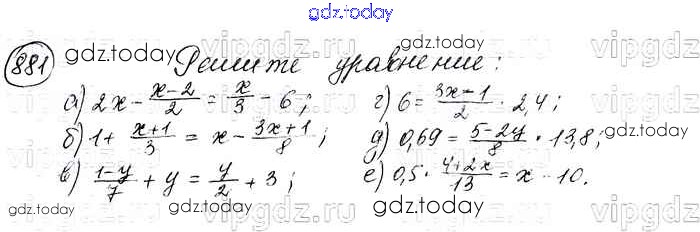 gdz.today
881 Решите уравнение:
а) 2x - (x-2)/2 = x/3 - 6;
б) 1 + (x+1)/3 = x - (3x+1)/8;
в) (1-y)/7 + y = y/2 + 3;
г) 6 = (3x-1)/2 · 2,4;
д) 0,69 = (5-2y)/8 · 13,8;
е) 0,5 · (4+2x)/13 = x - 10.
gdz.today
gdz.today
gdz.today
gdz.today
gdz.today
gdz.today
gdz.today
vipgdz.ru
vipgdz.ru
vipgdz.ru
vipgdz.ru